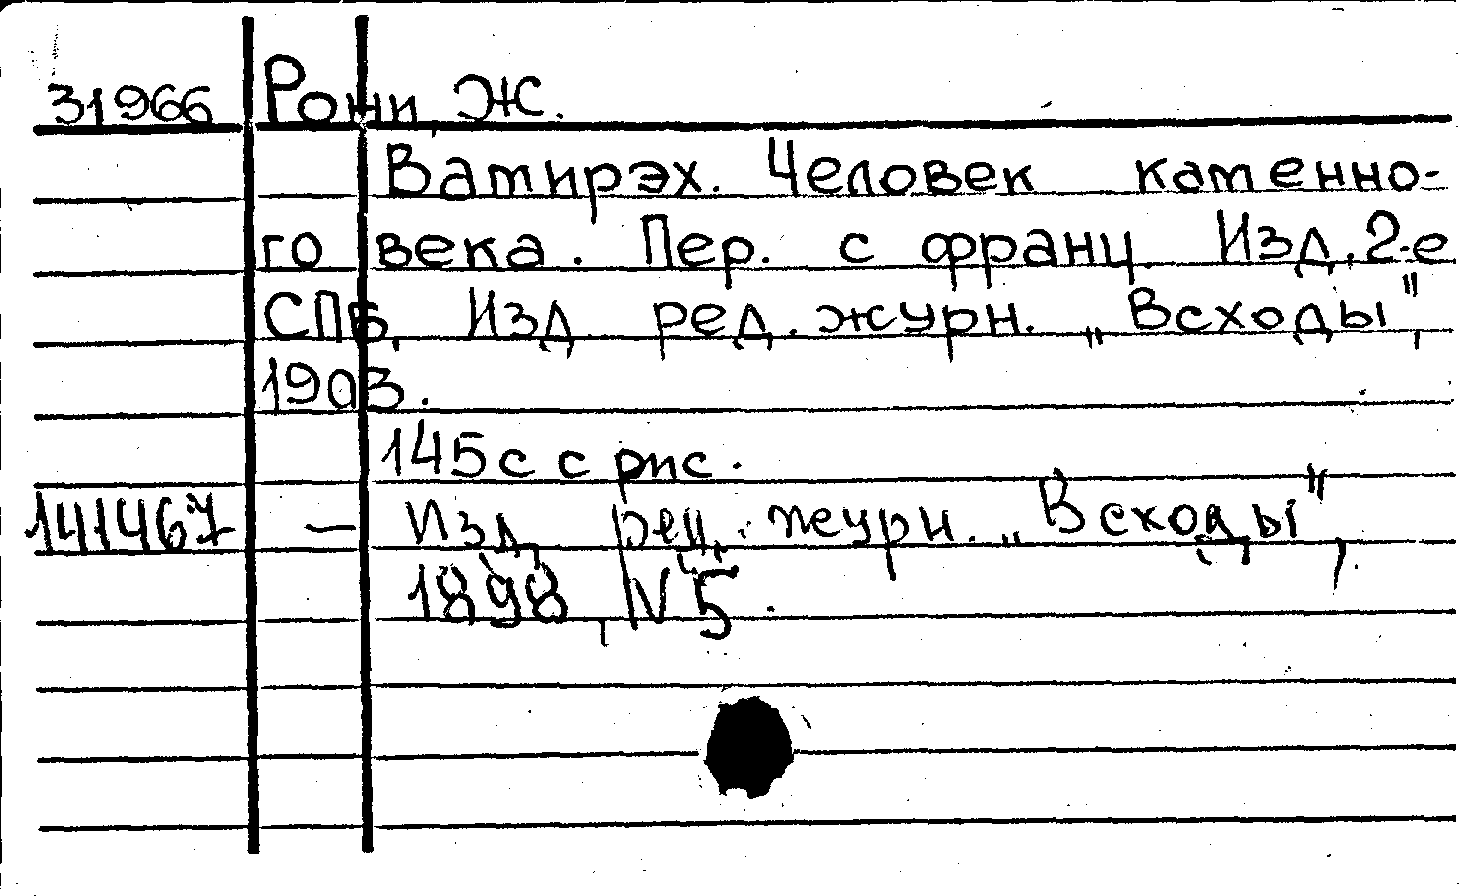 31966 Рони, Ж.
Вамирэх. Человек каменно-
го века. Пер. с франц. Изд. 2-е
СПБ, Изд. ред. журн. „Всходы",
1903.
145 с с рис.
141467 — Изд. ред. журн. „Всходы",
1898, N 5.